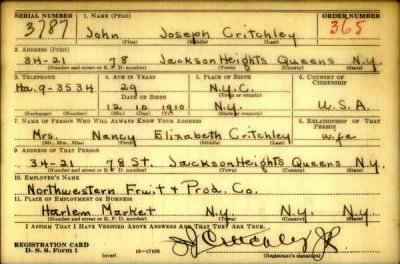 SERIAL NUMBER 1. NAME (Print) ORDER NUMBER
3787 John Joseph Critchley 365
(First) (Middle) (Last)
2. ADDRESS (Print)
34-21 78 Jackson Heights Queens N.Y.
(Number and street or R. F. D. number) (Town) (County) (State)
3. TELEPHONE 4. AGE IN YEARS 5. PLACE OF BIRTH 6. COUNTRY OF CITIZENSHIP
Ha. 9-3534 29 N.Y.C.
DATE OF BIRTH (Town or county)
12 10 1910 N.Y. U.S.A.
(Exchange) (Number) (Mo.) (Day) (Yr.) (State or country)
7. NAME OF PERSON WHO WILL ALWAYS KNOW YOUR ADDRESS 8. RELATIONSHIP OF THAT PERSON
Mrs. Nancy Elizabeth Critchley Wife
(Mr., Mrs., Miss) (First) (Middle) (Last)
9. ADDRESS OF THAT PERSON
34-21 78 St. Jackson Heights Queens N.Y.
(Number and street or R. F. D. number) (Town) (County) (State)
10. EMPLOYER'S NAME
Northwestern Fruit + Prod. Co.
11. PLACE OF EMPLOYMENT OR BUSINESS
Harlem Market N.Y. N.Y. N.Y.
(Number and street or R. F. D. number) (Town) (County) (State)
I AFFIRM THAT I HAVE VERIFIED ABOVE ANSWERS AND THAT THEY ARE TRUE.
REGISTRATION CARD
D. S. S. Form 1 (over) 16-17105 (Registrant's signature)